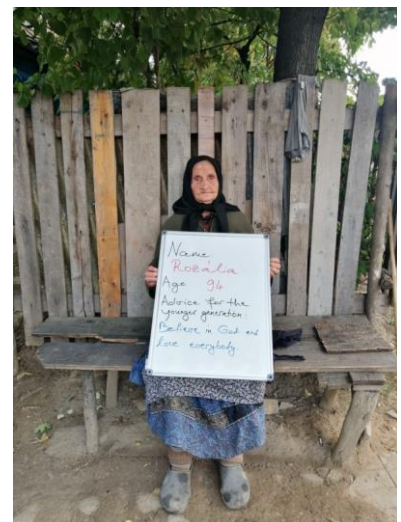 Name
Rozália
Age 94
Advice for the
younger generation
Believe in God and
love everybody